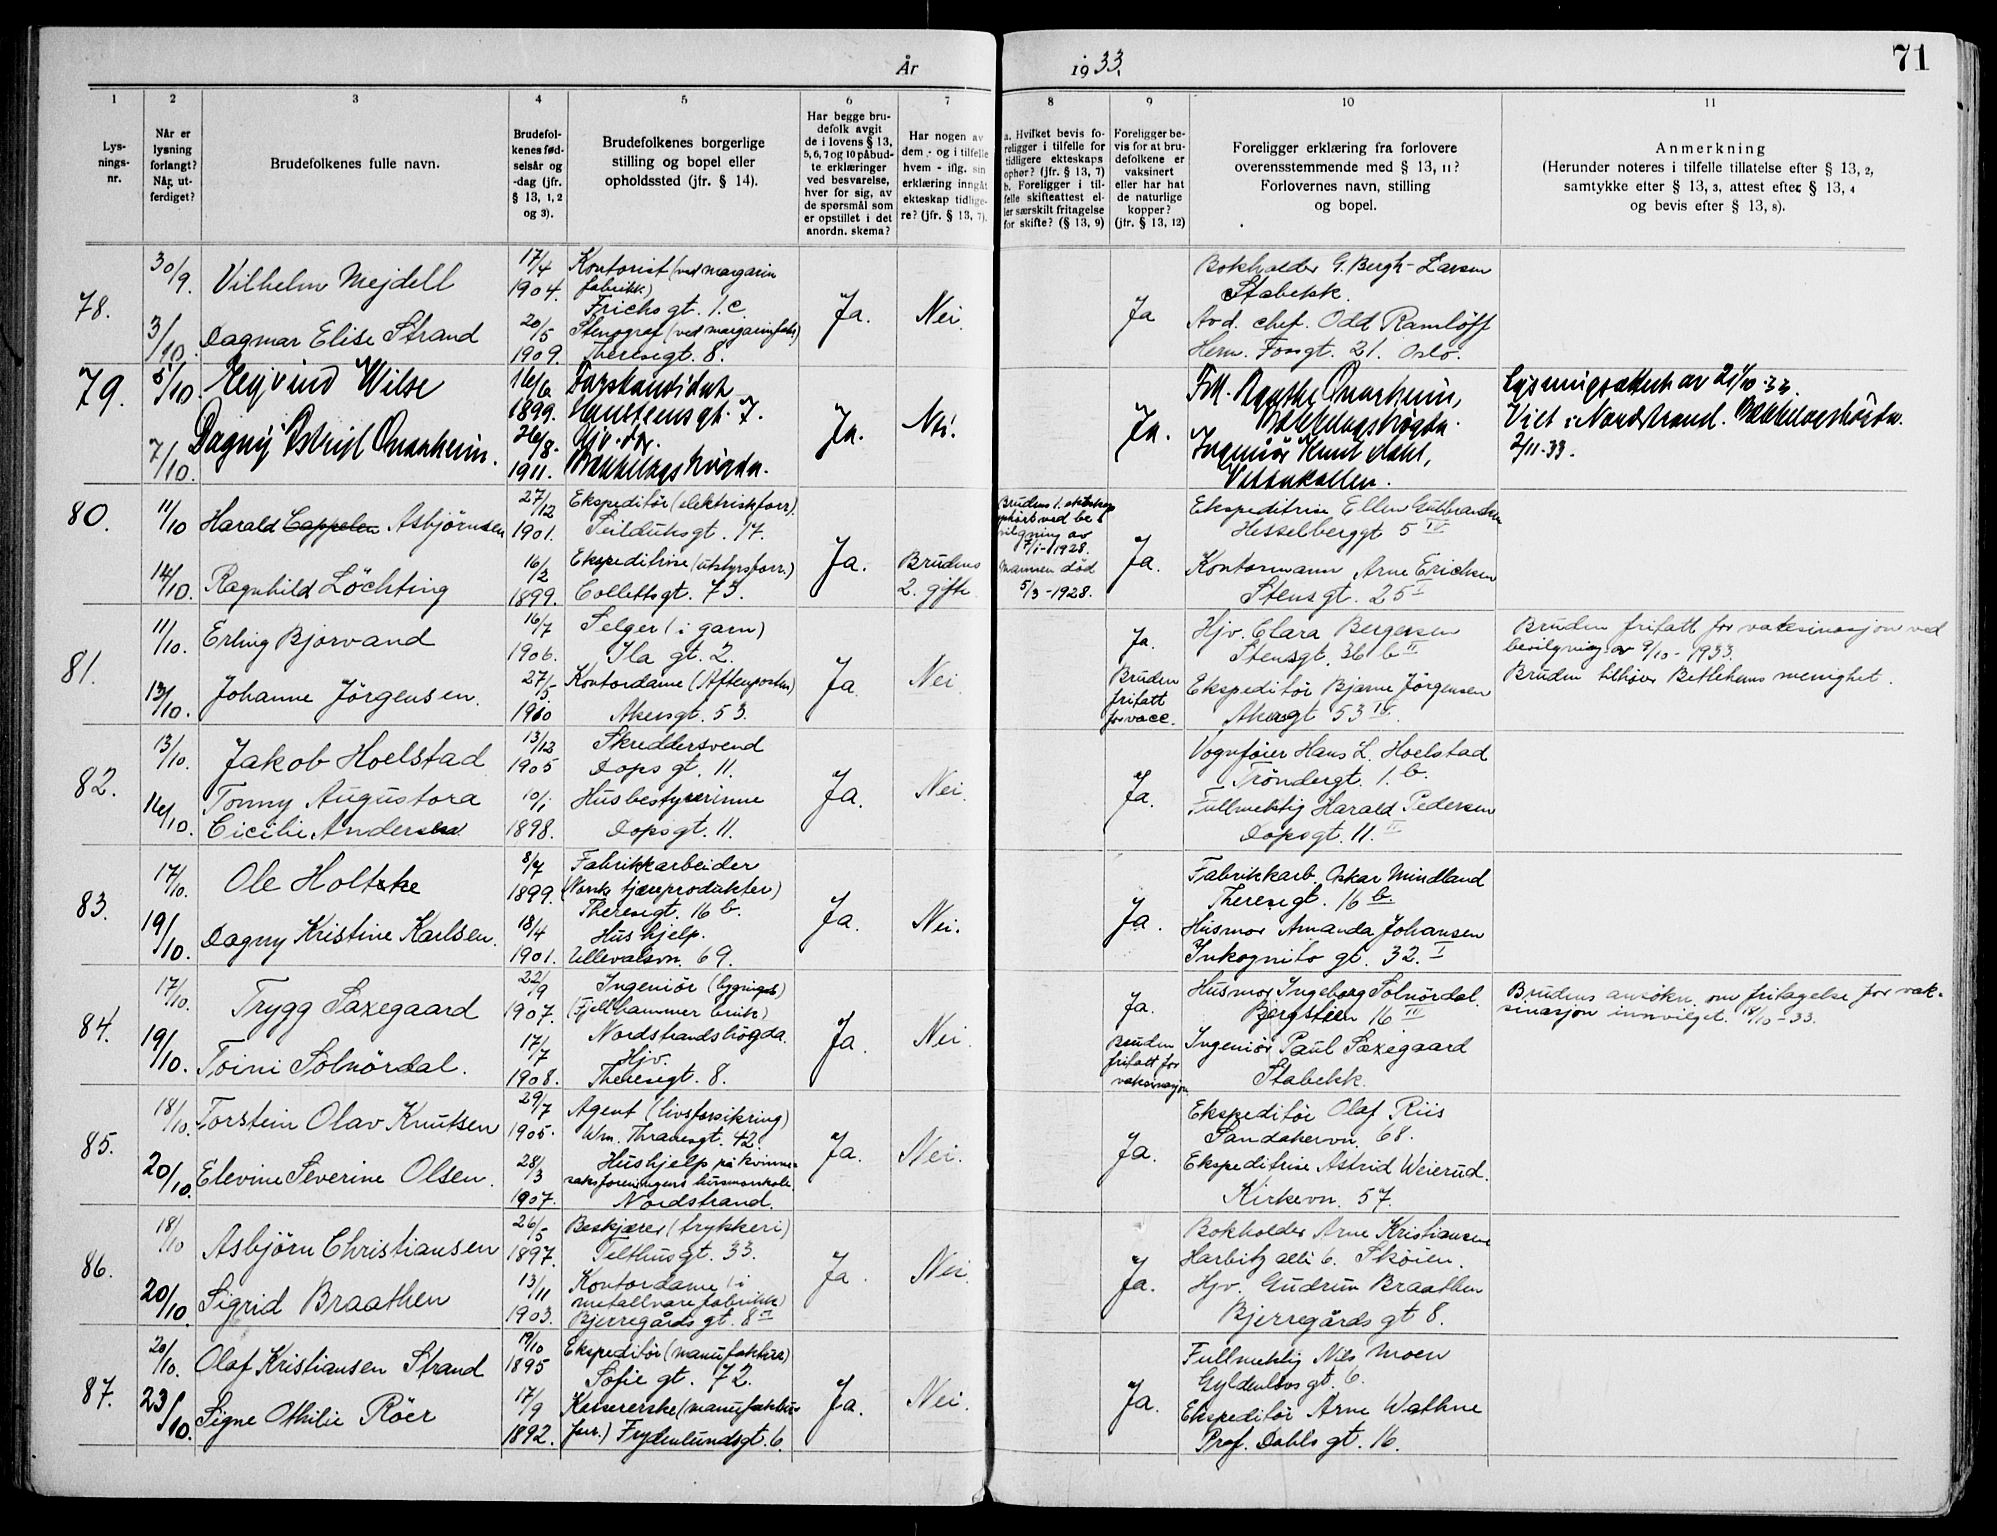 År 1933.
71
1
2
3
4
5
6
7
8
9
10
11
Lys-
nings-
nr.
Når er
lysning
forlangt?
Når ut-
ferdiget?
Brudefolkenes fulle navn.
Brudefol-
kenes fød-
selsår og
-dag (jfr.
§ 13, 1, 2
og 3).
Brudefolkenes borgerlige
stilling og bopel eller
opholdssted (jfr. § 14).
Har begge bru-
defolk avgit
de i lovens § 13,
5, 6, 7 og 10 påbud-
te erklæringer
ved besvarelse,
hver for sig, av
de spørsmål som
er opstillet i det
anordn. skema?
Har nogen av
dem - og i tilfelle
hvem - iflg. sin
erklæring inngåt
ekteskap tidlige-
re? (jfr. § 13, 7).
a. Hvilket bevis fo-
religger i tilfelle for
tidligere ekteskaps
ophør? (jfr. § 13, 7)
b. Foreligger i til-
felle skifteattest el-
ler særskilt fritagelse
for skifte? (§ 13, 9)
Foreligger be-
vis for at bru-
defolkene er
vaksinert
eller har hat
de naturlige
kopper?
(jfr. § 13, 12)
Foreligger erklæring fra forlovere
overensstemmende med § 13, 11?
Forlovernes navn, stilling
og bopel.
Anmerkning
(Herunder noteres i tilfelle tillatelse efter § 13, 2,
samtykke efter § 13, 3, attest efter § 13, 4
og bevis efter § 13, 8).
78.
30/9.
3/10.
Vilhelm Mejdell
Dagmar Elise Strand
17/4
1904.
20/5
1909.
Kontorist (ved margarin
fabrikk)
Frichs gt. 1.c.
Stenograf (ved margarinfabr.)
Theresegt. 8.
Ja.
Nei.
Ja
Bokholder G. Bergh-Larsen
Stabekk.
Avd. chef. Odd Ramløff
Herm. Fossgt. 21. Oslo.
79.
5/10
7/10.
Wilse
Dagny Astrid
16/6
1899.
26/8.
1911.
Forstkandidat
Hausteensgt. 7.
Hjv. dtr.
Bekkelagshøgda.
Ja.
Nei.
Ja.
Bekkelagshøgda.
Ingeniør Knut Dahl,
Voksenkollen.
Lysningsattest av 21/10-33.
Viet i Nordstrand. Bekkelagshøgda.
2/11-33.
80.
11/10
14/10.
Harald Cappelen Asbjørnsen
Ragnhild Löchting
27/12
1901.
16/2
1899.
Ekspeditör (elektriskforr.)
Seilduksgt. 17.
Ekspeditrise (utstyrsforr.)
Colletts gt. 73.
Ja.
Brudens
2. gifte
Brudens 1. ekteskap
ophørt ved be-
vilgning av
7/1-1928.
Mannen död
5/3-1928.
Ja.
Ekspeditrise Ellen Gulbrandsen
Hesselberggt 5 IV
Kontormann Arne Erichsen
Stensgt. 25 I
81.
11/10.
13/10.
Erling Bjorvand
Johanne Jörgensen.
16/7
1906.
27/5
1910
Selger (i garn)
Ila gt. 2.
Kontordame (Aftenposten)
Akersgt. 53.
Ja
Nei.
Ja.
Bruden
fritatt
for vacc.
Hjv. Clara Bergersen
Stensgt. 36 b II
Ekspeditör Bjarne Jörgensen
Akersgt 53 IV.
Bruden fritatt for vaksinasjon ved
bevilgning av 9/10-1933.
Bruden tilhører Betlehems menighet.
82.
13/10.
16/10.
Jakob Hoelstad
Tonny Augustora
Cicilie Andersen
13/12
1905
10/1
1898.
Skreddersvend
Dops gt. 11.
Husbestyrerinne
Dopsgt. 11.
Ja.
Nei.
Ja.
Vognföier Hans L. Hoelstad
Tröndergt. 1. b.
Fullmektig Harald Pedersen
Dopsgt. 11. II
83.
17/10.
19/10.
Ole Holtske
Dagny Kristine Karlsen.
8/7
1899.
13/4
1901.
Fabrikkarbeider
(Norsk tjæreprodukter)
Theresegt. 16 b.
Hushjelp.
Ullevålsvn. 69.
Ja.
Nei.
Ja.
Fabrikkarb. Oskar Mindland
Theresegt. 16 b.
Husmor Amanda Johansen
Inkognito gt. 32. I
84.
17/10.
19/10.
Trygg Saxegaard
Toini Solnördal.
22/9
1907.
17/7
1908.
Ingeniör (bygnings)
(Fjellhammer bruk)
Nordstrandshögda.
Hjv.
Theresegt. 8.
Ja.
Nei.
Ja.
Bruden
fritatt for
vaksinasjon
Husmor Ingeborg Solnördal.
Bergstien 16 III
Ingeniör Paul Saxegaard
Stabekk.
Brudens ansökn. om fritagelse for vak-
sinasjon innvilget. 18/10-33.
85.
18/10.
20/10.
Torstein Olav Knutsen
Elevine Severine Olsen.
29/7
1905.
28/3
1907.
Agent (livsforsikring)
Wm. Thranesgt. 42.
Hushjelp på kvinne-
saksforeningens husmorskole.
Nordstrand.
Ja.
Nei.
Ja.
Ekspeditör Olaf Riis
Sandakervn. 68.
Ekspeditrise Astrid Weierud.
Kirkevn. 57.
86.
18/10
20/10.
Asbjörn Christiansen
Sigrid Braathen
26/5
1897.
13/11
1903.
Beskjærer (trykkeri)
Telthusgt. 33.
Kontordame (i
metallvarefabrikk)
Bjerregårds gt. 8 II
Ja.
Nei.
Ja.
Bokholder Arne Kristiansen
Harbitz allé 6. Sköien.
Hjv. Gudrun Braathen
Bjerregårds gt 8.
87.
20/10.
23/10.
Olaf Kristiansen Strand
Signe Othilie Röer
19/10
1895
17/9
1892.
Ekspeditör (manufaktur)
Sofie gt. 72.
Kassererske (manufaktur-
forr.) Frydenlundsgt. 6.
Ja.
Nei.
Ja.
Fullmektig Nils Moen
Gyldenlovs gt. 6.
Ekspeditör Arne Wathne
Prof. Dahls gt. 16.